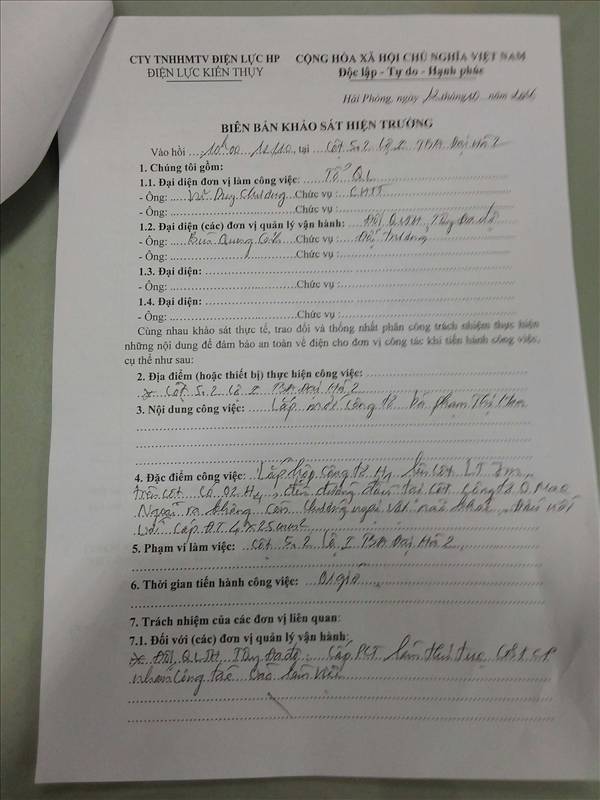 CTY TNHHMTV ĐIỆN LỰC HP CỘNG HÒA XÃ HỘI CHỦ NGHĨA VIỆT NAM
ĐIỆN LỰC KIẾN THỤY Độc lập - Tự do - Hạnh phúc
Hải Phòng, ngày 12 tháng 10 năm
BIÊN BẢN KHẢO SÁT HIỆN TRƯỜNG
Vào hồi 10h00 12/10, tại Cột 5.2 Lộ I TBA Đại Hà 2
1. Chúng tôi gồm:
1.1. Đại diện đơn vị làm công việc: Tổ QL
- Ông: Vũ Duy Chương Chức vụ: CHTT
- Ông: Chức vụ:
1.2. Đại diện (các) đơn vị quản lý vận hành: Đội QLTH Thụy Đa độ
- Ông: Bùi Quang Chức vụ: Đội trưởng
- Ông: Chức vụ:
1.3. Đại diện:
- Ông: Chức vụ:
1.4. Đại diện:
- Ông: Chức vụ:
Cùng nhau khảo sát thực tế, trao đổi và thống nhất phân công trách nhiệm thực hiện
những nội dung để đảm bảo an toàn về điện cho đơn vị công tác khi tiến hành công việc,
cụ thể như sau:
2. Địa điểm (hoặc thiết bị) thực hiện công việc:
Cột 5.2 Lộ I TBA Đại Hà 2
3. Nội dung công việc: Lắp mới công tơ Phạm Thị
4. Đặc điểm công việc: Lắp hộp công tơ H1 lên cột LT
trên cột có 02 H4, đường dây tại cột công tơ
Ngoài ra không còn chướng ngại vật nào khác. Đấu nối
cáp ĐT 4x25mm2
5. Phạm vi làm việc: Cột 5.2 Lộ I TBA Đại Hà 2
6. Thời gian tiến hành công việc: 01 giờ
7. Trách nhiệm của các đơn vị liên quan:
7.1. Đối với (các) đơn vị quản lý vận hành:
Đội QLTH Thụy Đa độ: Cấp PCT làm thủ tục
công tác vào làm việc